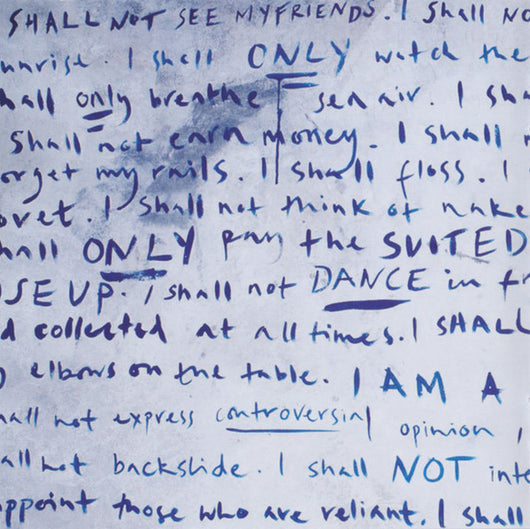 SHALL NOT SEE MY FRIENDS. I Shall NO
unrise. I shall ONLY watch the
hall only breathe sea air. I sha
Shall not earn money. I shall
orget my rails. I shall floss. I
ovet. I shall not think of nake
hall ONLY pay the SUITED
OSE UP. I shall not DANCE in f
d collected at all times. I SHALL
elbows on the table. I AM A
hall not express controversial opinion I
all not backslide. I shall NOT inte
ppoint those who are reliant. I shall